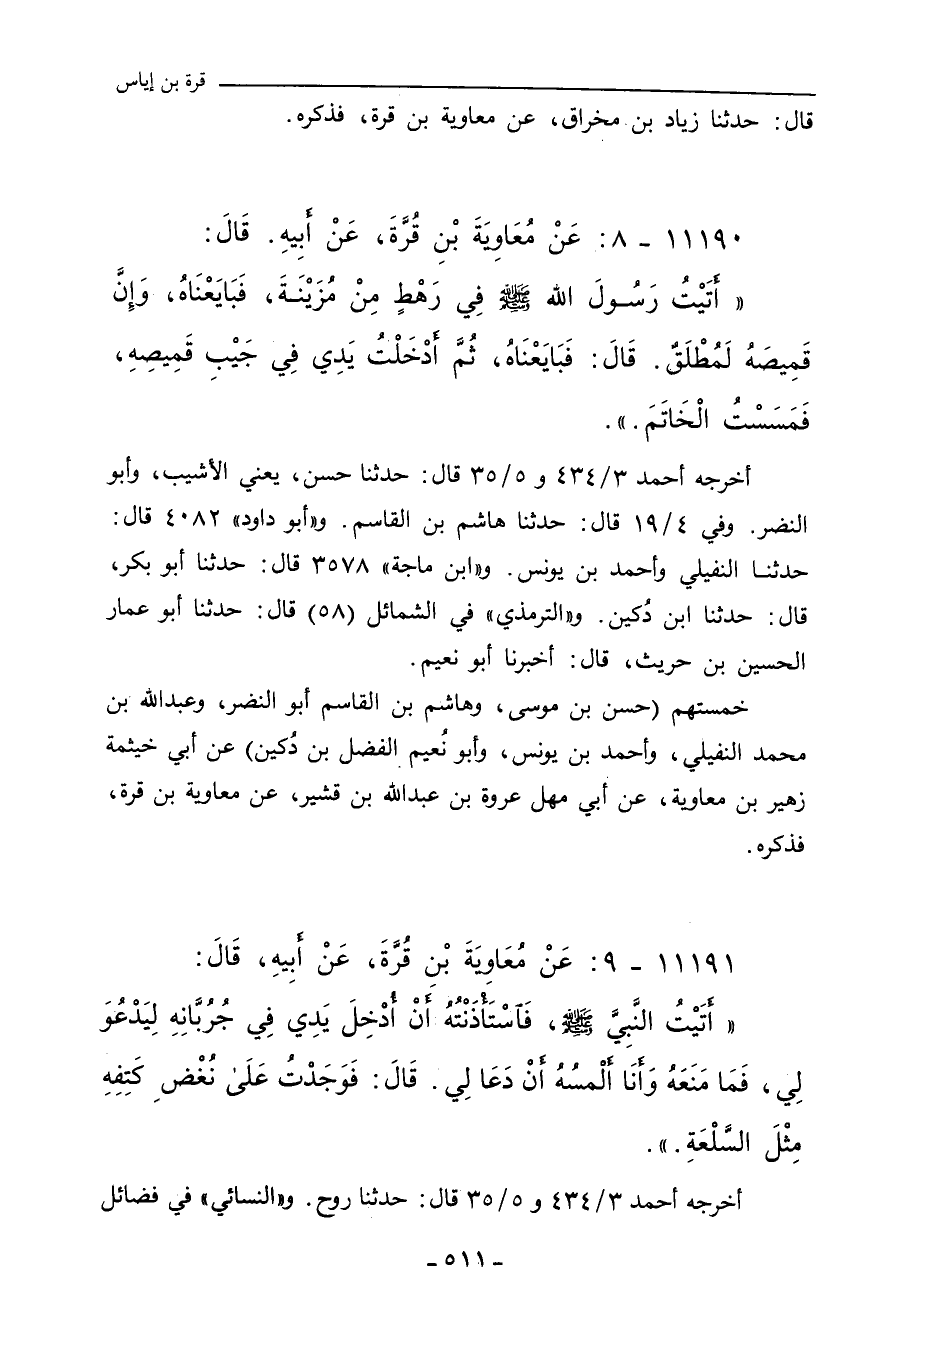 قرة بن إياس
قال: حدثنا زياد بن مخراق، عن معاوية بن قرة، فذكره.
١١١٩٠ - ٨: عَنْ مُعَاوِيَةَ بْنِ قُرَّةَ، عَنْ أَبِيهِ. قَالَ:
« أَتَيْتُ رَسُولَ الله ﷺ فِي رَهْطٍ مِنْ مُزَيْنَةَ، فَبَايَعْنَاهُ، وَإِنَّ
قَمِيصَهُ لَمُطْلَقٌ. قَالَ: فَبَايَعْنَاهُ، ثُمَّ أَدْخَلْتُ يَدِي فِي جَيْبِ قَمِيصِهِ،
فَمَسَسْتُ الْخَاتَمَ.».
أخرجه أحمد ٤٣٤/٣ و ٣٥/٥ قال: حدثنا حسن، يعني الأشيب، وأبو
النضر. وفي ١٩/٤ قال: حدثنا هاشم بن القاسم. و«أبو داود» ٤٠٨٢ قال:
حدثنا النفيلي وأحمد بن يونس. و«ابن ماجة» ٣٥٧٨ قال: حدثنا أبو بكر،
قال: حدثنا ابن دُكين. و«الترمذي» في الشمائل (٥٨) قال: حدثنا أبو عمار
الحسين بن حريث، قال: أخبرنا أبو نعيم.
خمستهم (حسن بن موسى، وهاشم بن القاسم أبو النضر، وعبدالله بن
محمد النفيلي، وأحمد بن يونس، وأبو نُعيم الفضل بن دُكين) عن أبي خيثمة
زهير بن معاوية، عن أبي مهل عروة بن عبدالله بن قشير، عن معاوية بن قرة،
فذكره.
١١١٩١ - ٩: عَنْ مُعَاوِيَةَ بْنِ قُرَّةَ، عَنْ أَبِيهِ، قَالَ:
« أَتَيْتُ النَّبِيَّ ﷺ، فَاسْتَأْذَنْتُهُ أَنْ أُدْخِلَ يَدِي فِي جُرُبَّانِهِ لِيَدْعُوَ
لِي، فَمَا مَنَعَهُ وَأَنَا أَلْمسُهُ أَنْ دَعَا لِي. قَالَ: فَوَجَدْتُ عَلَىٰ نُغْضِ كَتِفِهِ
مِثْلَ السَّلْعَةِ.».
أخرجه أحمد ٤٣٤/٣ و ٣٥/٥ قال: حدثنا روح. و«النسائي» في فضائل
- ٥١١ -